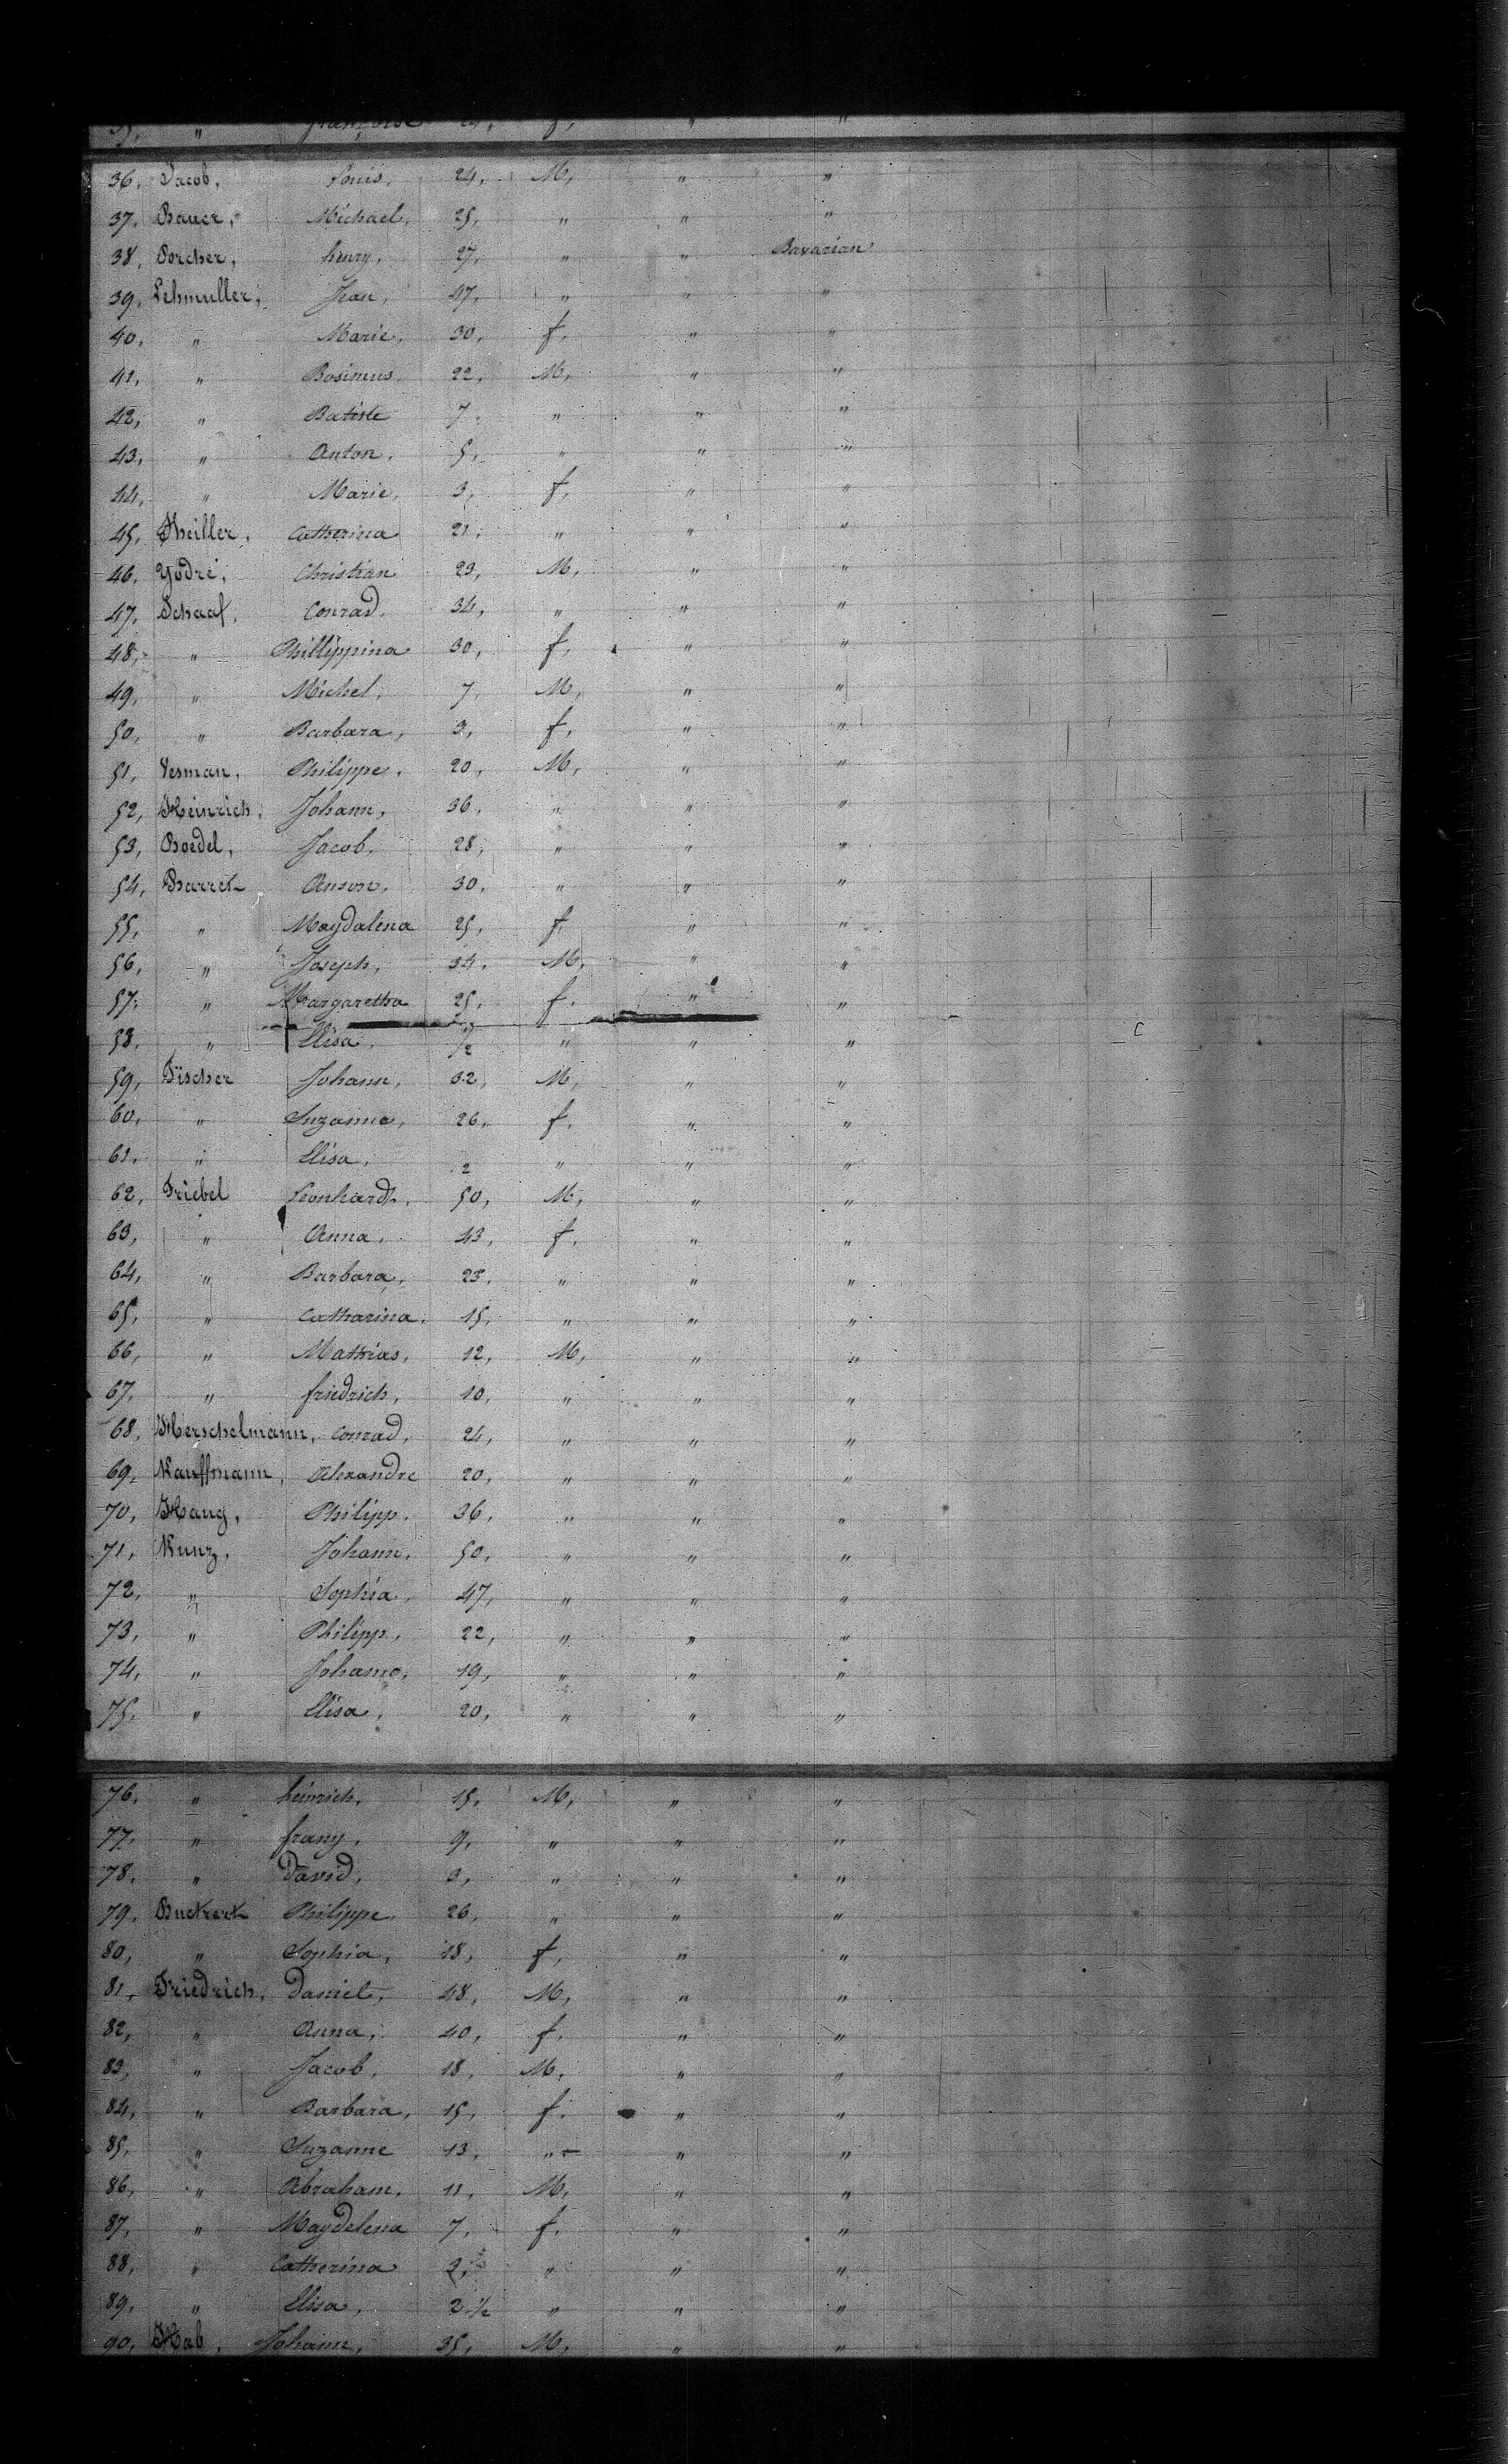 35, " françoise 24, f, " "
36, Jacob, Louis, 24, M, " "
37, Bauer, Michael, 25, " " "
38, Porcher, henry, 27, " " Bavarian
39, Lehmuller, Jean, 47, " " "
40, " Marie, 30, f, " "
41, " Bosimus 22, M, " "
42, " Batiste 7 " " "
43, " Anton, 5, " " "
44, " Marie, 3, f, " "
45, Theiller, Catherina 21, " " "
46, Yodré, Christian 23, M, " "
47, Schaaf, Conrad, 34, " " "
48, " Phillippina 30, f, " "
49, " Michel, 7, M, " "
50, " Barbara, 3, f, " "
51, Vesman, Philippe, 20, M, " "
52, Heinrich, Johann, 36, " " "
53, Boedel, Jacob, 28, " " "
54, Barret Anson, 30, " " "
55, " Magdalena 25, f, " "
56, " Joseph, 34, M, " "
57, " Margaretha 25, f, " "
58, " Elisa, 1/2 " " "
59, Fischer Johann, 32, M, " "
60, " Suzanna, 26, f, " "
61, " Elisa, 2 " " "
62, Triebel Leonhardt, 50, M, " "
63, " Anna, 43, f, " "
64, " Barbara, 23, " " "
65, " Catharina, 15, " " "
66, " Mathias, 12, M, " "
67, " friedrich, 10, " " "
68, Herschelmann, Conrad, 24, " " "
69, Kauffmann, Alexandre 20, " " "
70, Haug, Philipp, 36, " " "
71, Kunz, Johann, 50, " " "
72, " Sophia, 47, " " "
73, " Philipp, 22, " " "
74, " Johanna, 19, " " "
75, " Elisa, 20, " " "
76, " heinrich, 15, M, " "
77, " franz, 9, " " "
78, " David, 3, " " "
79, Philippe 26, " " "
80, " Sophia, 18, f, " "
81, Friedrich, Daniel, 48, M, " "
82, " Anna, 40, f, " "
83, " Jacob, 18, M, " "
84, " Barbara, 15, f, " "
85, " Suzanne 13, " " "
86, " Abraham, 11, M, " "
87, " Magdelena 7, f, " "
88, " Catherina 2, " " "
89, " Elisa, 2 1/2 " " "
90, Hab, Johann, 35, M, " "